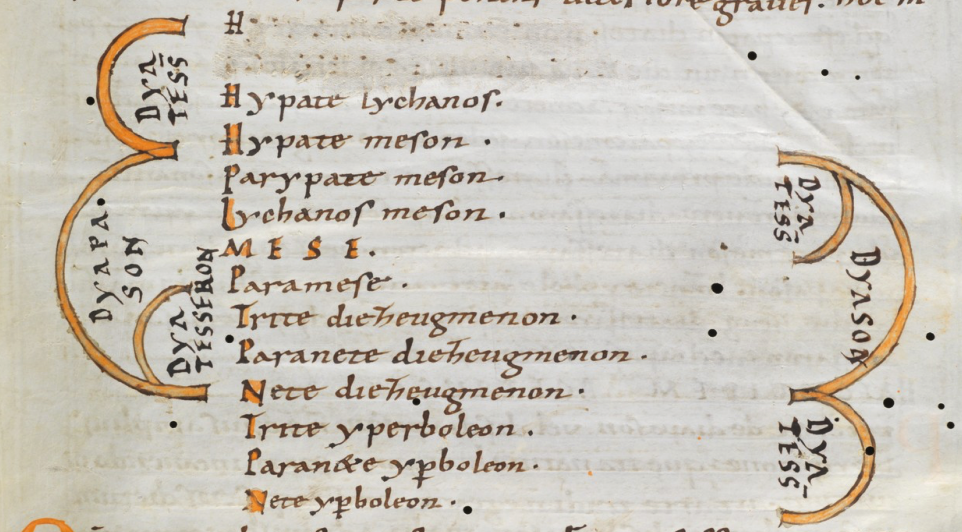 H
Hypate lychanos.
Hypate meson .
Parypate meson .
Lychanos meson .
MESE.
Paramese .
Trite diezeugmenon .
Paranete diezeugmenon .
Nete diezeugmenon .
Trite yperboleon .
Paranete yꝑboleon .
Nete yꝑboleon .
DYA
TESS̄
DYAPA.
SON
DYA
TESSERON
DYA
TESS
DYASON
DYA
TESS